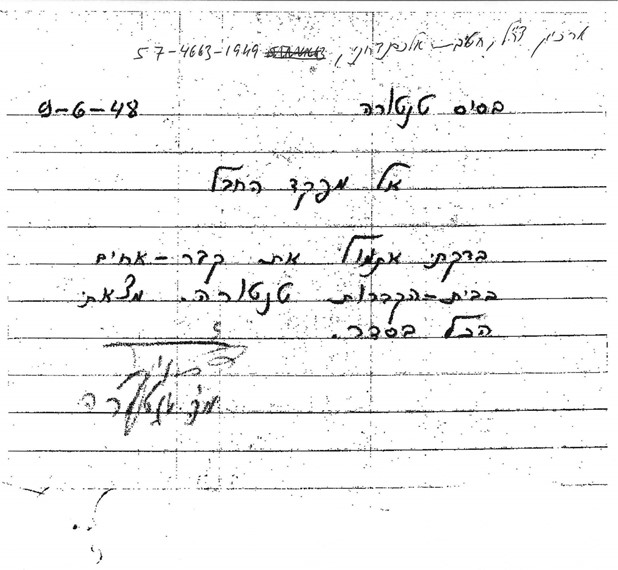 ארכיון צה"ל, חטיבת אלכסנדרוני, 57-4663-1949
בסיס טנטורה 9-6-48
אל מפקד החבל
בדקתי אתמול את קבר-אחים
בבית-הקברות טנטורה. מצאתי
הכל בסדר.
טנטורה